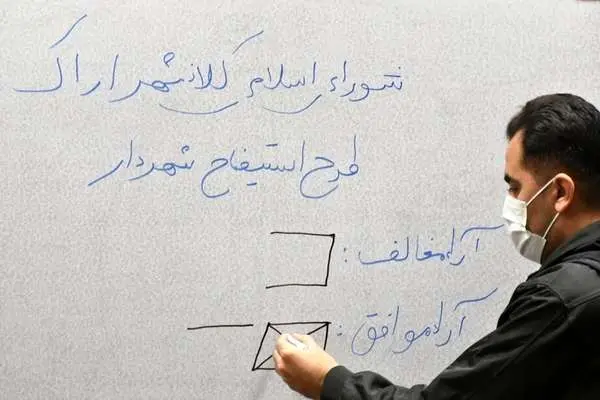 شورای اسلامی کلانشهر اراک
طرح استیضاح شهردار
آراء مخالف :
آراء موافق :